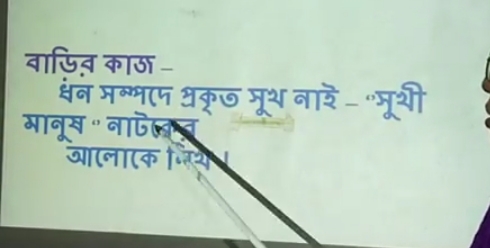 বাড়ির কাজ –
ধন সম্পদে প্রকৃত সুখ নাই – “সুখী
মানুষ “ নাটকের
আলোকে লিখ ।